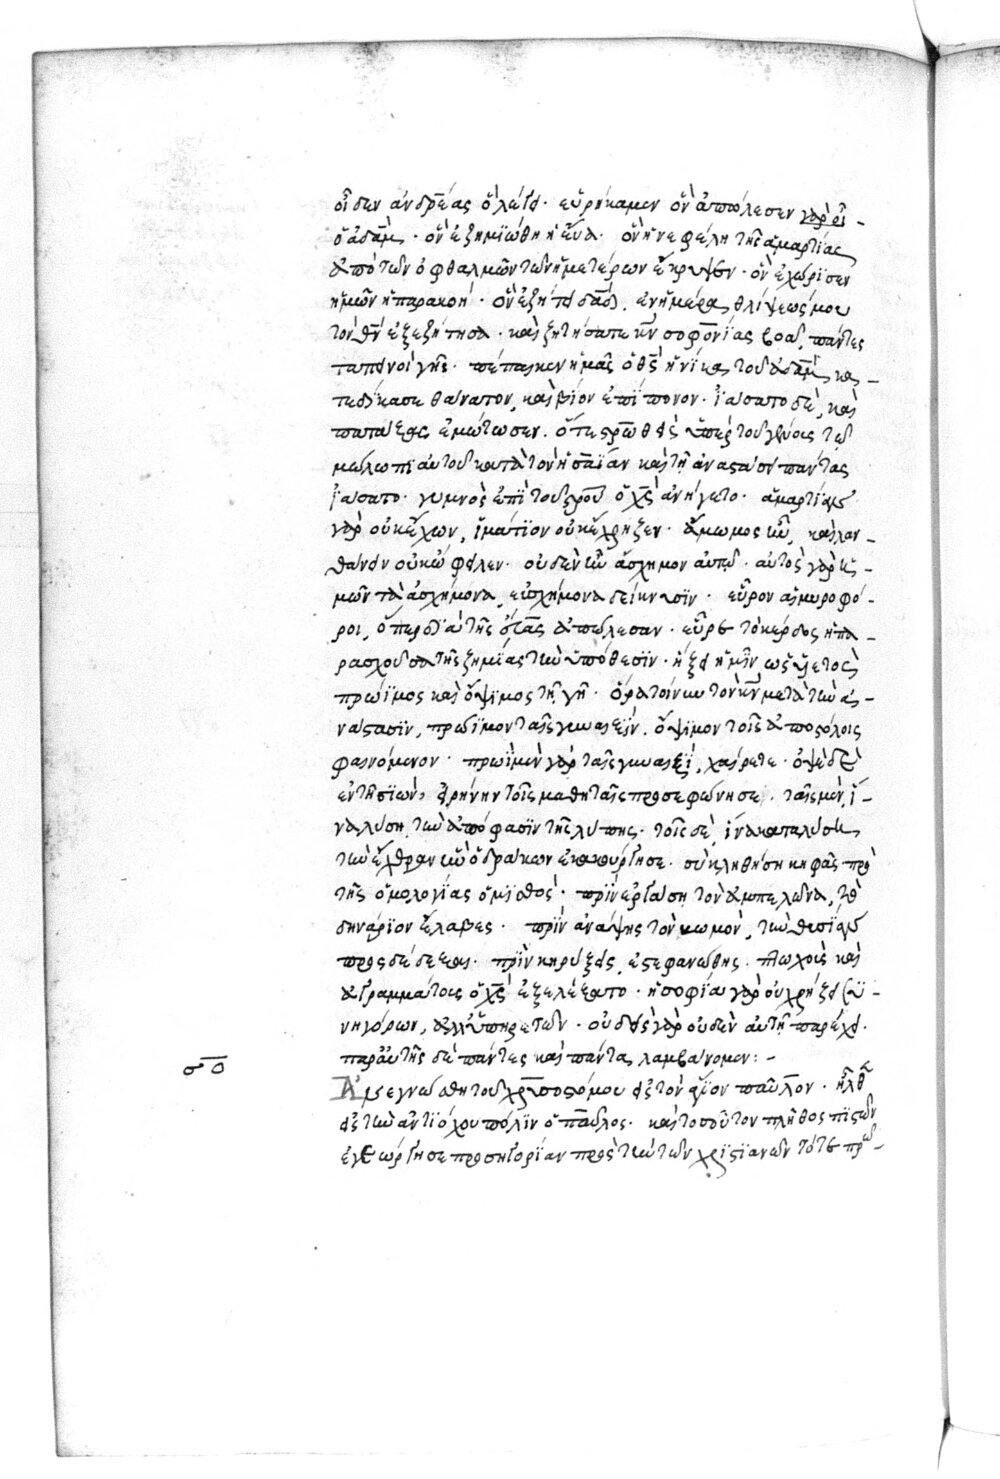 οἶδεν ἀνδρέας ὃ λέγει· εὑρήκαμεν ὃν ἀπώλεσεν
ὁ ἀδὰμ· ὃν ἐζημιώθη ἡ εὔα· ὃν ἡ νεφέλη τῆς ἁμαρτίας
ἀπὸ τῶν ὀφθαλμῶν τῶν ἡμετέρων ἔκρυψεν· ὃν ἐχώρισεν
ἡμῶν ἡ παρακοή· ὃν ἐξήτει δαδ. ἐν ἡμέρα θλίψεώς μου
τὸν θν ἐξεζήτησα· καὶ ζητήσατε κν σοφονίας βοᾶ, πάντες
ταπεινοὶ γῆς· πέπαικεν ἡμᾶς ὁ θς ἡνίκα τοῦ ἀδὰμ κα-
τεδίκασε θάνατον, καὶ βίον ἐπίπονον· ἰάσατο δὲ, καὶ
πατάξας ἐμώτωσεν. ὅτε σρωθεὶς ὑπὲρ τοῦ γένους τῶ
μώλωπι αὐτοῦ κατὰ τὸν ἡσαΐαν καὶ τῆ ἀναστάσει πάντας
ἰάσατο· γυμνὸς ἐπὶ τοῦ σρου ὁ χς ἀνήγετο· ἁμαρτίαν
γὰρ οὐκ ἔχων, ἱμάτιον οὐκ ἔχρηζεν· ἄμωμος ὢν, καὶ λαν-
θάνειν οὐκ ὤφειλεν· οὐδὲν ἦν ἄσχημον αὐτῶ· αὐτὸς γὰρ
μῶν τὰ ἀσχήμονα, εὐσχήμονα δείκνυσιν· εὗρον αἱ μυροφό-
ροι, ὅπερ διὰ τῆς ἀπώλεσαν· εὗρε τὸ κέρδος ἡ πα-
ρασχοῦσα τῆς ζημίας τὴν ὑπόθεσιν· ἥξει ἡμῖν ὡς ὑετὸς
πρώϊμος καὶ ὄψιμος τῆ γῆ· ὅρα τοίνυν τὸν κν μετὰ τὴν ἀ-
νάστασιν, πρώϊμον ταῖς γυναιξὶν. ὄψιμον τοῖς ἀποστόλοις
φαινόμενον· πρωῒ μὲν γὰρ ταῖς γυναιξὶ, χαίρετε· ὀψὲ δὲ
ἐν τῆ σιὼν, εἰρήνην τοῖς μαθηταῖς προσεφώνησε· ταῖς μὲν, ἵ-
να λύση τὴν ἀπόφασιν τῆς λύπης· τοῖς δὲ, ἵνα καταλύση
τὴν ἔχθραν ἣν ὁ δράκων ἐκακούργησε· σὺ κληθήση κηφᾶς πρὸ
τῆς ὁμολογίας ὁ μισθός· πρὶν ἐργάση τὸν ἀμπελῶνα, τὸ
δηνάριον ἔλαβες· πρὶν ἀνάψης τὸν νωμὸν, τὴν θυσίαν
προσδέδεκται· πρὶν κηρύξεις, ἐστεφανώθης. πτωχοὺς καὶ
ἀγραμμάτους ὁ χς ἐξελέξατο· ἡ σοφία γὰρ οὐ χρήζει συ-
νηγόρων, ἀλλ' ὑπηρετῶν· οὐδεὶς γὰρ οὐδὲν αὐτῆ παρέχει·
παρ' αὐτῆς δὲ πάντες καὶ πάντα λαμβάνομεν: -
σο
Ἀνεγνώσθη τοῦ χρυσοστόμου εἰς τὸν ἅγιον παῦλον· ἦλθεν
εἰς τὴν ἀντιόχου πόλιν ὁ παῦλος· καὶ τοσοῦτον πλῆθος πιστῶν
ἐγεώργησε προσηγορίαν πρὸς τὴν τῶν χριστιανῶν τότε πρω-